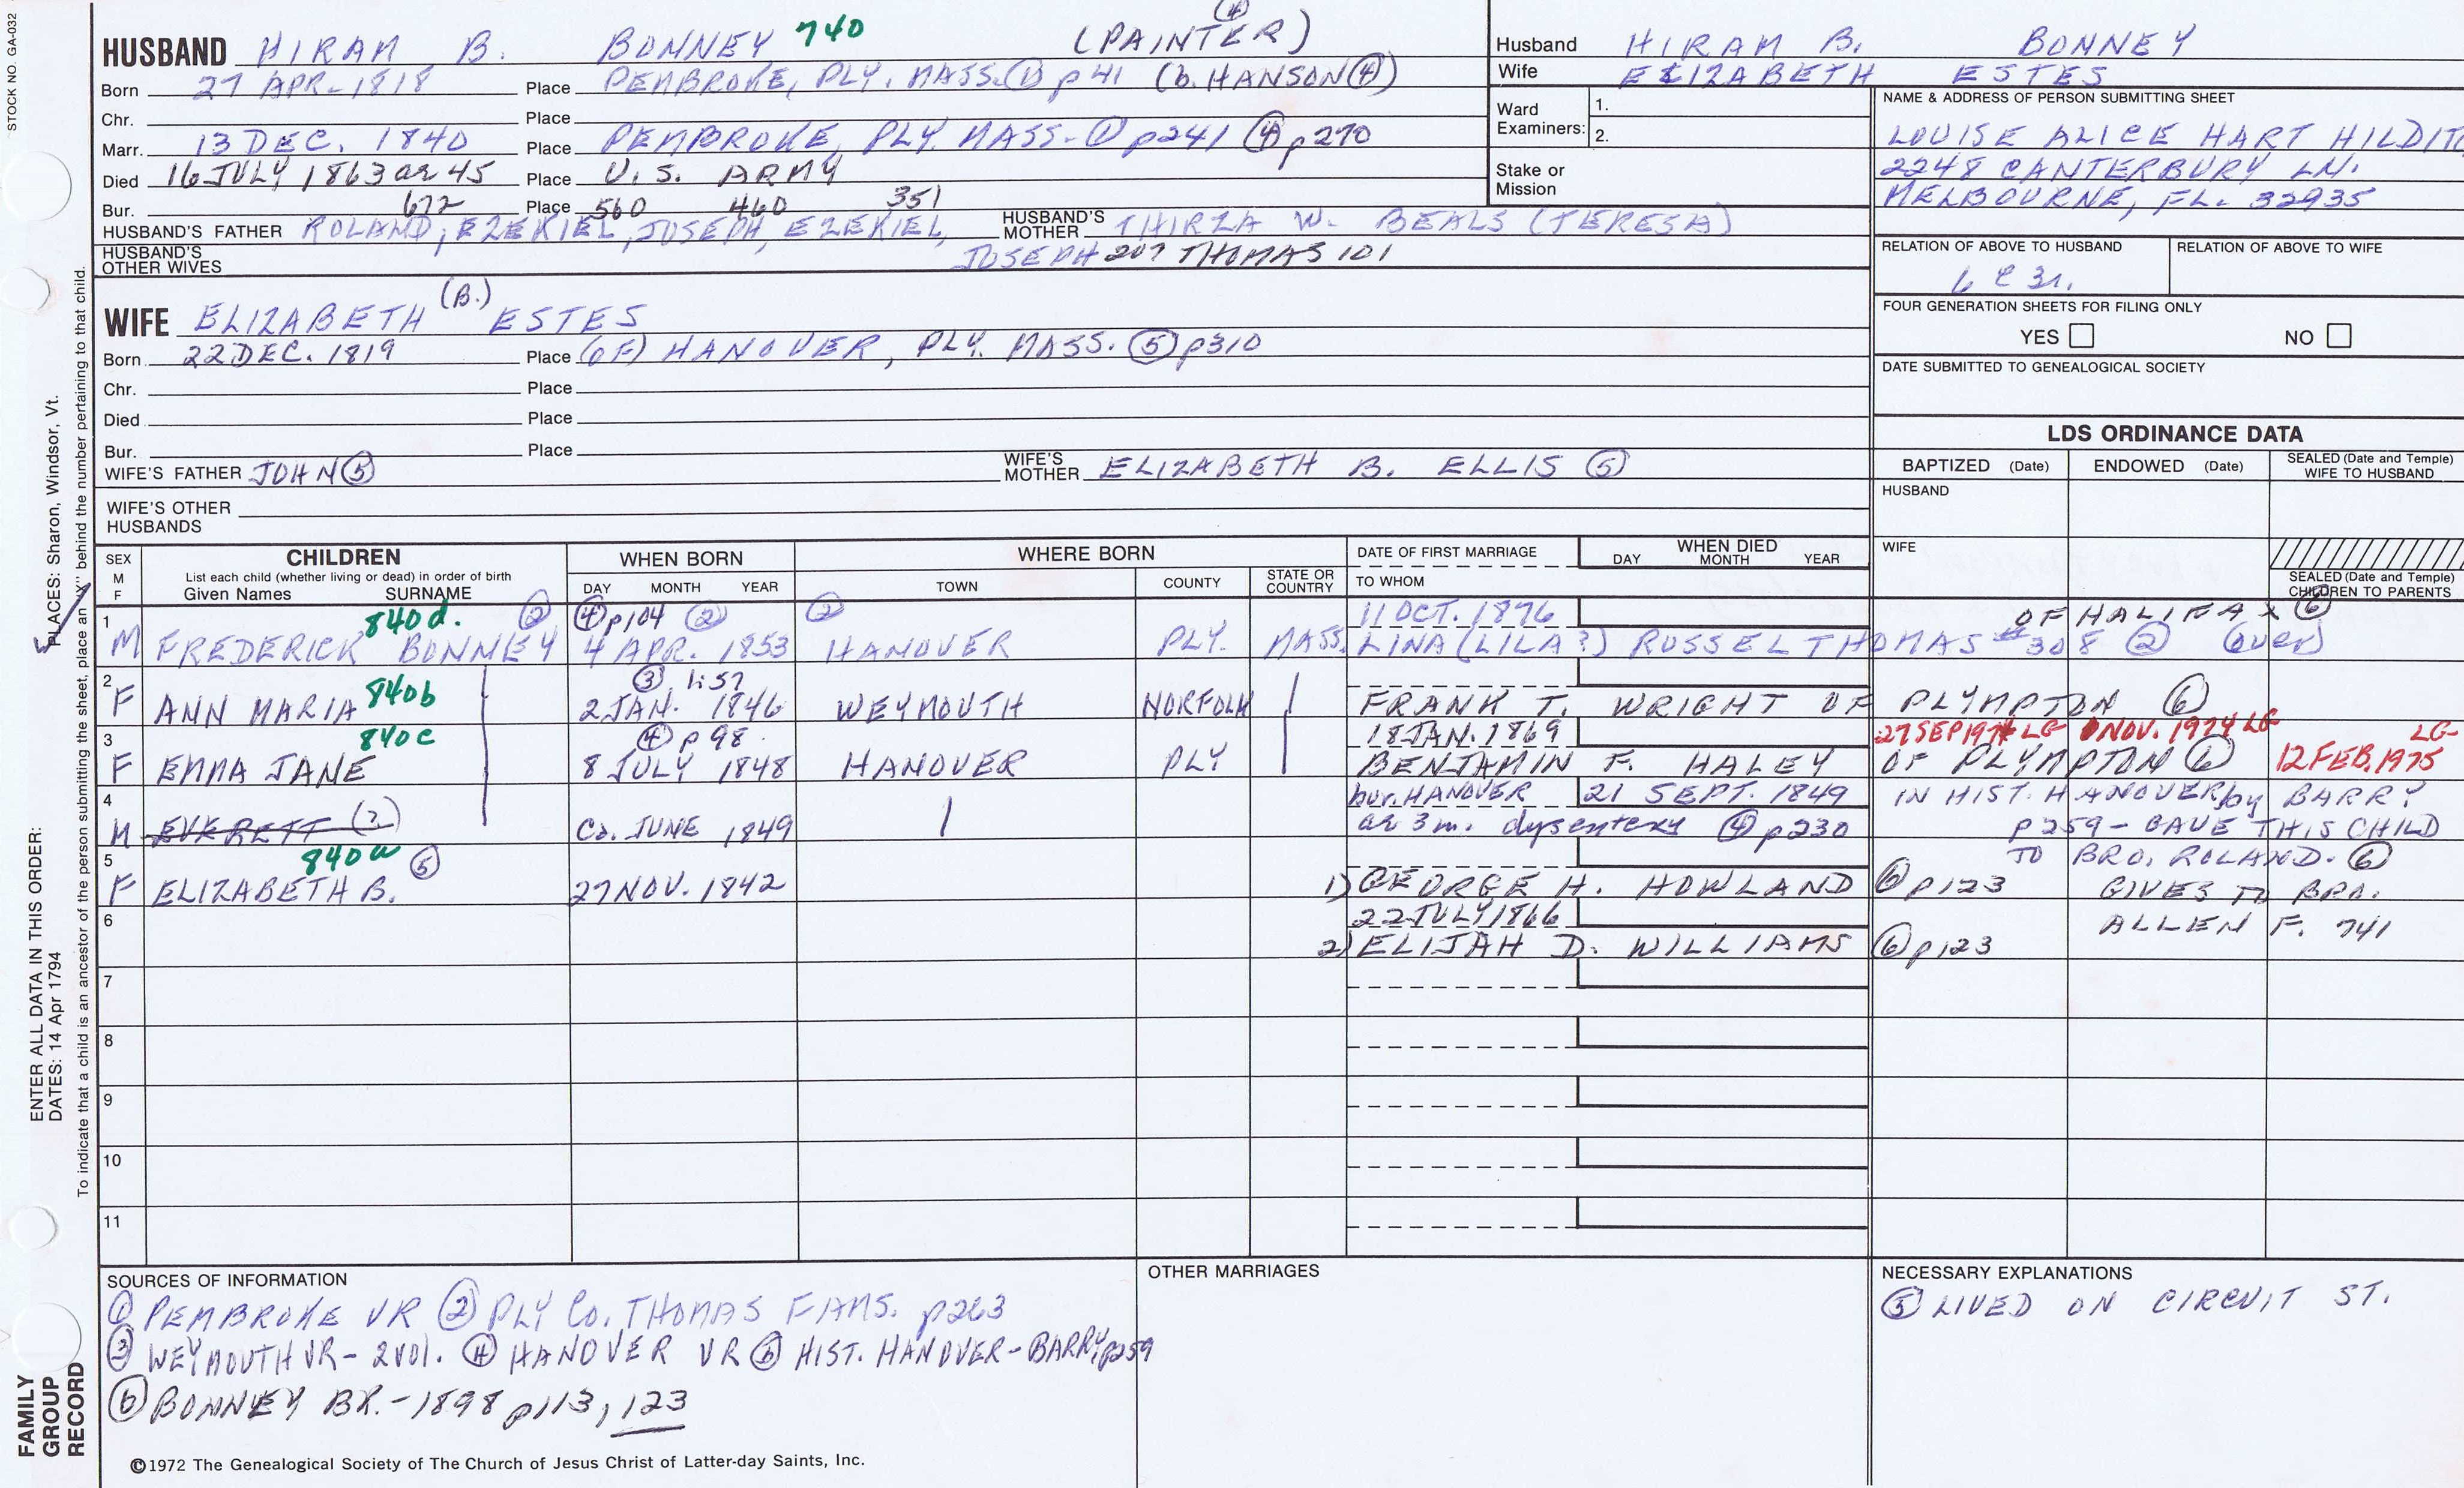 STOCK NO. GA-032
(4)
HUSBAND HIRAM B. BONNEY 740 (PAINTER)
Born 27 APR. 1818 Place PEMBROKE, PLY. MASS. (1) p41 (b. HANSON (4))
Chr. Place
Marr. 13 DEC. 1840 Place PEMBROKE, PLY. MASS. (1) p241 (4) p270
Died 16 JULY 1863 ae 45 Place U.S. ARMY
Bur. 672 Place 560 460 351
HUSBAND'S FATHER ROLAND, EZEKIEL, JOSEPH, EZEKIEL, HUSBAND'S MOTHER THIRZA W. BEALS (TERESA)
HUSBAND'S OTHER WIVES JOSEPH 207 THOMAS 101
Husband HIRAM B. BONNEY
Wife ELIZABETH ESTES
Ward Examiners: 1.
2.
Stake or Mission
NAME & ADDRESS OF PERSON SUBMITTING SHEET
LOUISE ALICE HART
2248 CANTERBURY LN.
MELBOURNE, FL. 32935
RELATION OF ABOVE TO HUSBAND RELATION OF ABOVE TO WIFE
6 C 3r.
FOUR GENERATION SHEETS FOR FILING ONLY
YES NO
DATE SUBMITTED TO GENEALOGICAL SOCIETY
(B.)
WIFE ELIZABETH ESTES
Born 22 DEC. 1819 Place (OF) HANOVER, PLY. MASS. (5) p310
Chr. Place
Died Place
Bur. Place
WIFE'S FATHER JOHN (5) WIFE'S MOTHER ELIZABETH B. ELLIS (5)
WIFE'S OTHER HUSBANDS
LDS ORDINANCE DATA
BAPTIZED (Date) ENDOWED (Date) SEALED (Date and Temple) WIFE TO HUSBAND
HUSBAND
WIFE
SEALED (Date and Temple) CHILDREN TO PARENTS
SEX M F CHILDREN List each child (whether living or dead) in order of birth Given Names SURNAME
WHEN BORN DAY MONTH YEAR
WHERE BORN TOWN COUNTY STATE OR COUNTRY
DATE OF FIRST MARRIAGE TO WHOM
WHEN DIED DAY MONTH YEAR
1 840d. (2) (4) p104 (2) (2) 11 OCT. 1876 OF HALIFAX (6)
M FREDERICK BONNEY 4 APR. 1853 HANOVER PLY. MASS. LINA (LILA?) RUSSEL THOMAS #308 (2) (over)
2 840b (3) 1:57
F ANN MARIA 2 JAN. 1846 WEYMOUTH NORFOLK FRANK T. WRIGHT OF PLYMPTON (6)
3 840c (4) p98 18 JAN. 1869 27 SEP 1974 LG NOV. 1974 LG LG
F EMMA JANE 8 JULY 1848 HANOVER PLY BENJAMIN F. HALEY OF PLYMPTON (6) 12 FEB. 1975
4 bur. HANOVER 21 SEPT. 1849 IN HIST. HANOVER by BARRY
M EVERETT (?) Ca. JUNE 1849 ae 3m. dysentery (4) p230 p259 - GAVE THIS CHILD
5 840a (5) TO BRO. ROLAND. (6)
F ELIZABETH B. 27 NOV. 1842 1) GEORGE H. HOWLAND (6) p123 GIVES TO BRO.
6 22 JULY 1866 ALLEN F. 741
2) ELIJAH D. WILLIAMS (6) p123
7
8
9
10
11
SOURCES OF INFORMATION
(1) PEMBROKE VR (2) PLY CO. THOMAS FAMS. p263
(3) WEYMOUTH VR - 2 vol. (4) HANOVER VR (5) HIST. HANOVER - BARRY, p259
(6) BONNEY BK. - 1898 p113, 123
OTHER MARRIAGES
NECESSARY EXPLANATIONS
(5) LIVED ON CIRCUIT ST.
©1972 The Genealogical Society of The Church of Jesus Christ of Latter-day Saints, Inc.
FAMILY GROUP RECORD
ENTER ALL DATA IN THIS ORDER:
DATES: 14 Apr 1794
PLACES: Sharon, Windsor, Vt.
To indicate that a child is an ancestor of the person submitting the sheet, place an "X" behind the number pertaining to that child.